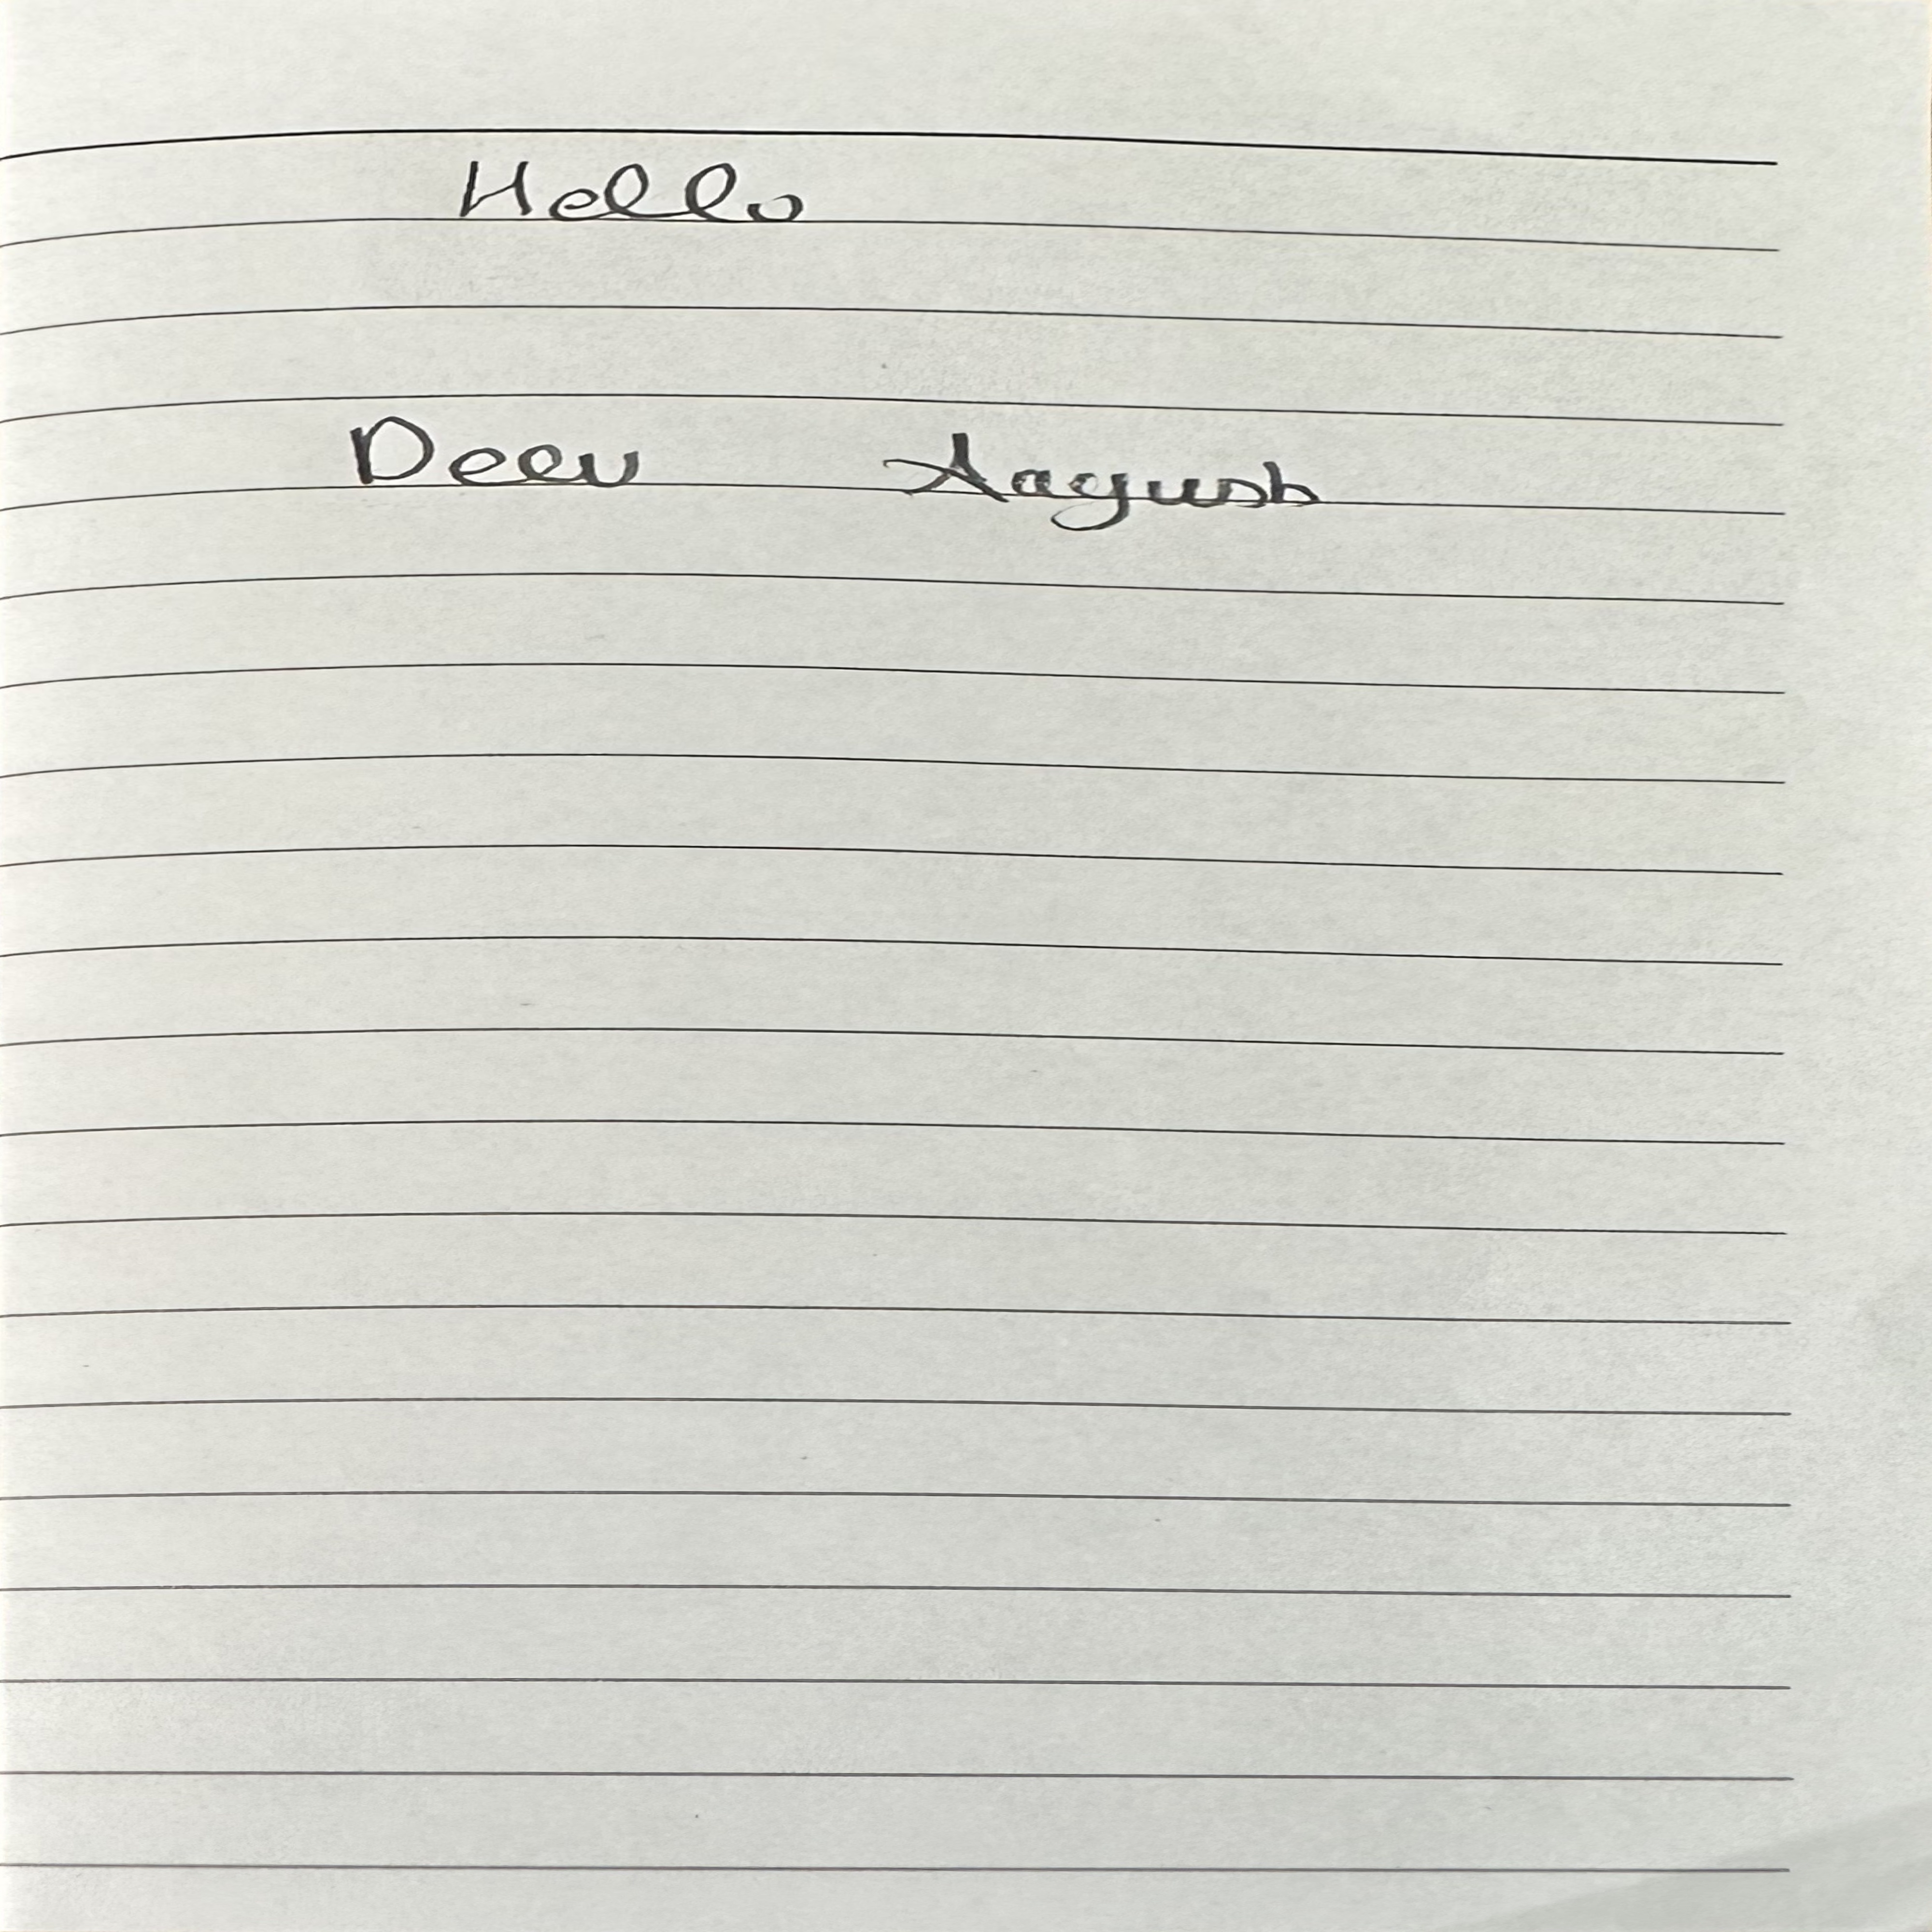 Hello
Deev Aayush